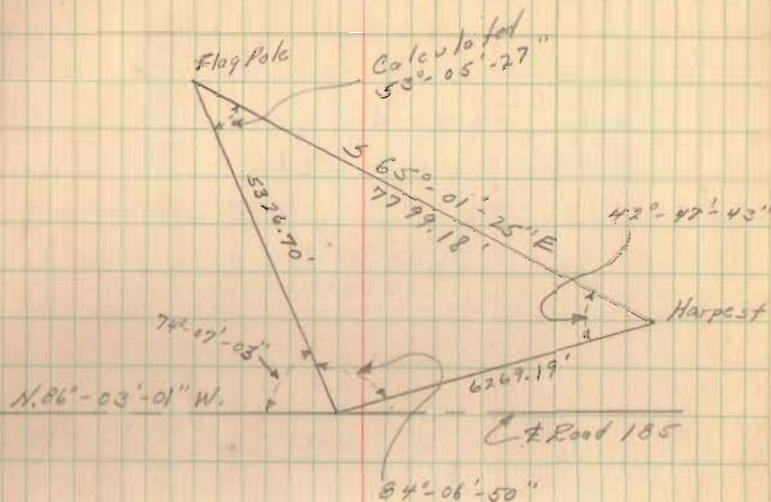 Flag Pole
Calculated
53°-05'-27"
S 65°-01'-25" E
7799.18'
5326.70'
42°-47'-43"
Harpest
74°-07'-03"
6269.19'
N.86°-03'-01" W.
℄ Road 185
84°-06'-50"